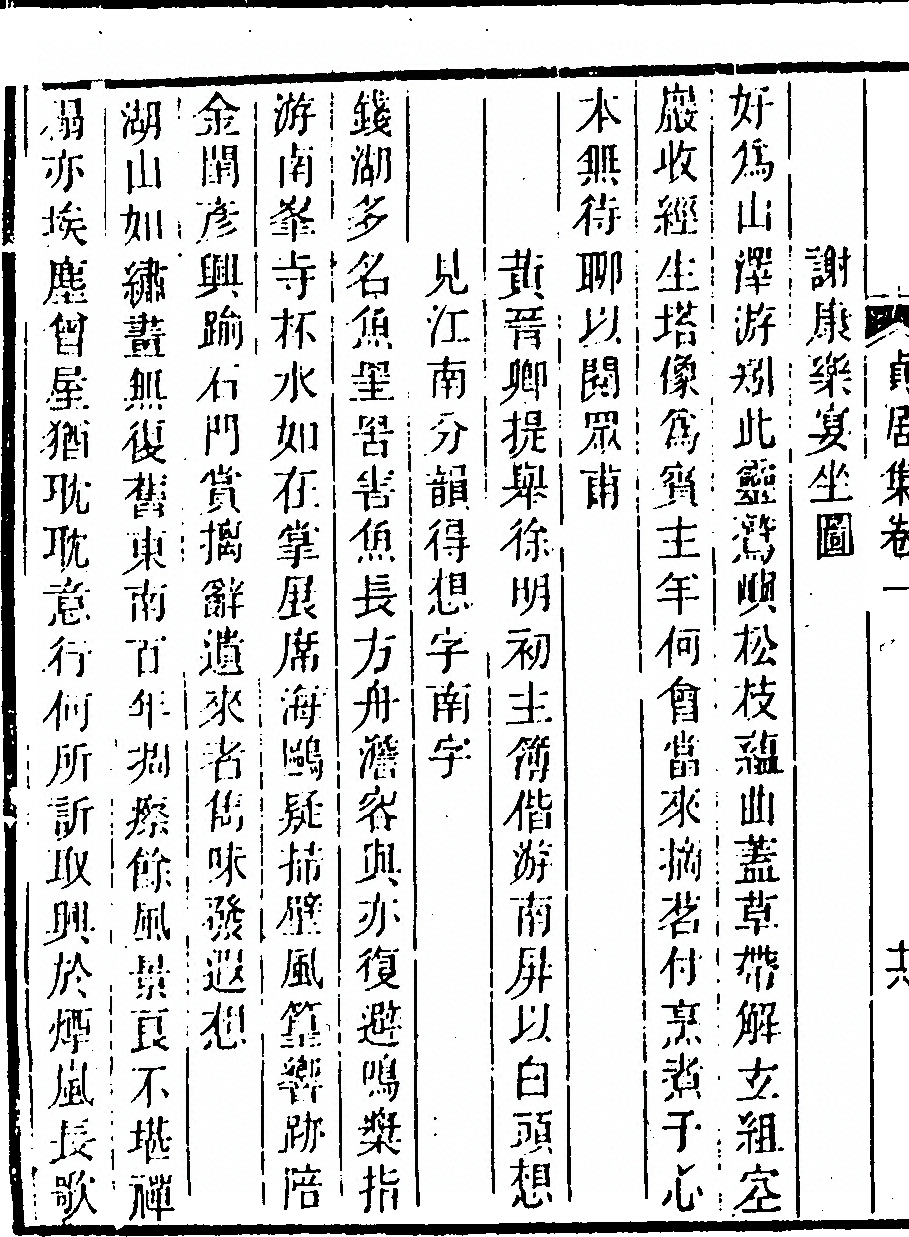 貞居集卷一
十六
謝康樂宴坐圖
好爲山澤游矧此靈鷲嶼松枝蘊曲蓋草帶解玄組空
巖收經生塔像爲賓主年何會當來摘茗付烹煮予心
本無待聊以閱眾甫
黃晉卿提舉徐明初主簿偕游南屏以白頭想
見江南分韻得想字南字
錢湖多名魚罣罟害魚長方舟澹容與亦復避鳴槳指
游南峯寺杯水如在掌展席海鷗疑掃壁風篁響跡陪
金閨彥興踰石門賞摛辭遺來者雋味發遐想
湖山如繡畫無復舊東南百年凋瘵餘風景良不堪禪
榻亦埃塵曾屋猶耽耽意行何所訢取興於煙嵐長歌